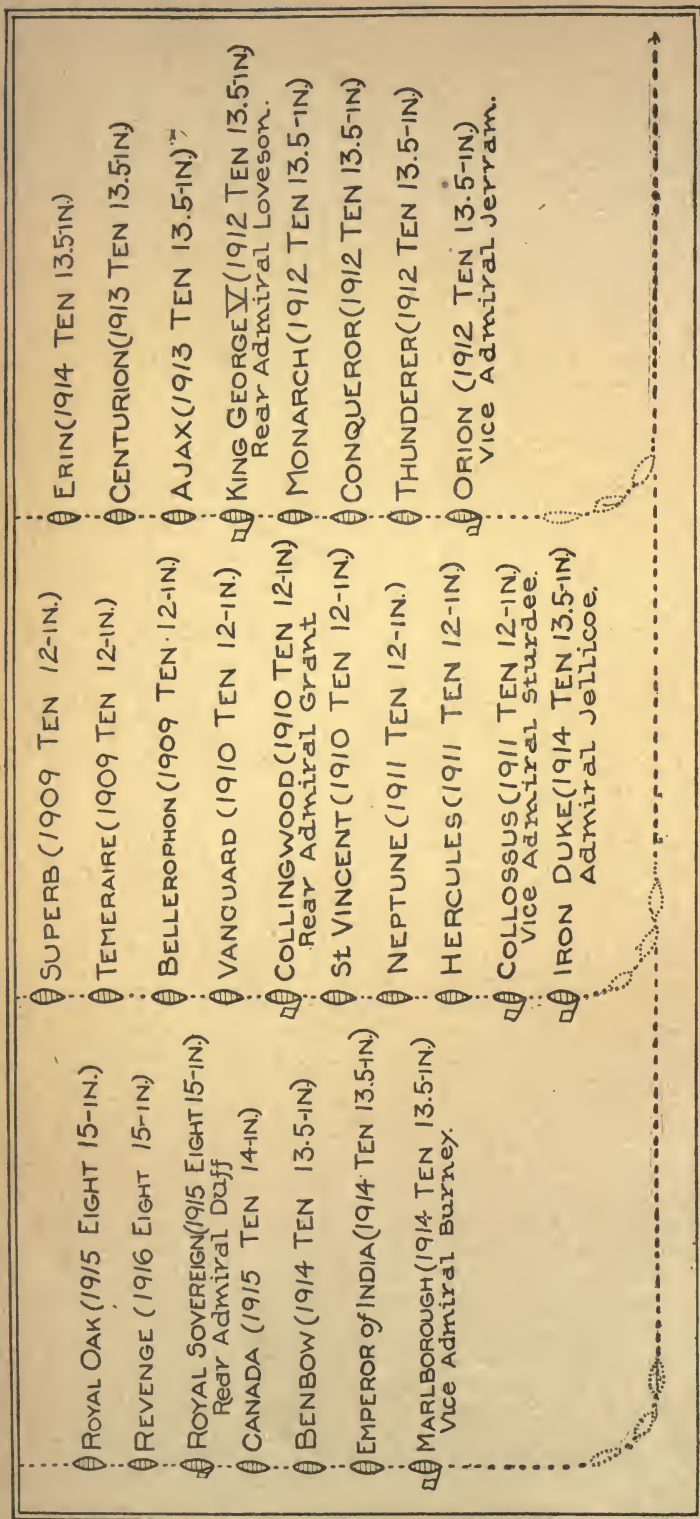 ROYAL OAK (1915 EIGHT 15-IN.)
REVENGE (1916 EIGHT 15-IN.)
ROYAL SOVEREIGN (1915 EIGHT 15-IN.)
Rear Admiral Duff
CANADA (1915 TEN 14-IN.)
BENBOW (1914 TEN 13.5-IN.)
EMPEROR of INDIA (1914 TEN 13.5-IN.)
MARLBOROUGH (1914 TEN 13.5-IN.)
Vice Admiral Burney.
SUPERB (1909 TEN 12-IN.)
TEMERAIRE (1909 TEN 12-IN.)
BELLEROPHON (1909 TEN 12-IN.)
VANGUARD (1910 TEN 12-IN.)
COLLINGWOOD (1910 TEN 12-IN)
Rear Admiral Grant
St VINCENT (1910 TEN 12-IN.)
NEPTUNE (1911 TEN 12-IN.)
HERCULES (1911 TEN 12-IN.)
COLLOSSUS (1911 TEN 12-IN.)
Vice Admiral Sturdee.
IRON DUKE (1914 TEN 13.5-IN.)
Admiral Jellicoe.
ERIN (1914 TEN 13.5-IN.)
CENTURION (1913 TEN 13.5-IN.)
AJAX (1913 TEN 13.5-IN.)
KING GEORGE V (1912 TEN 13.5-IN.)
Rear Admiral Loveson.
MONARCH (1912 TEN 13.5-IN.)
CONQUEROR (1912 TEN 13.5-IN.)
THUNDERER (1912 TEN 13.5-IN.)
ORION (1912 TEN 13.5-IN.)
Vice Admiral Jerram.